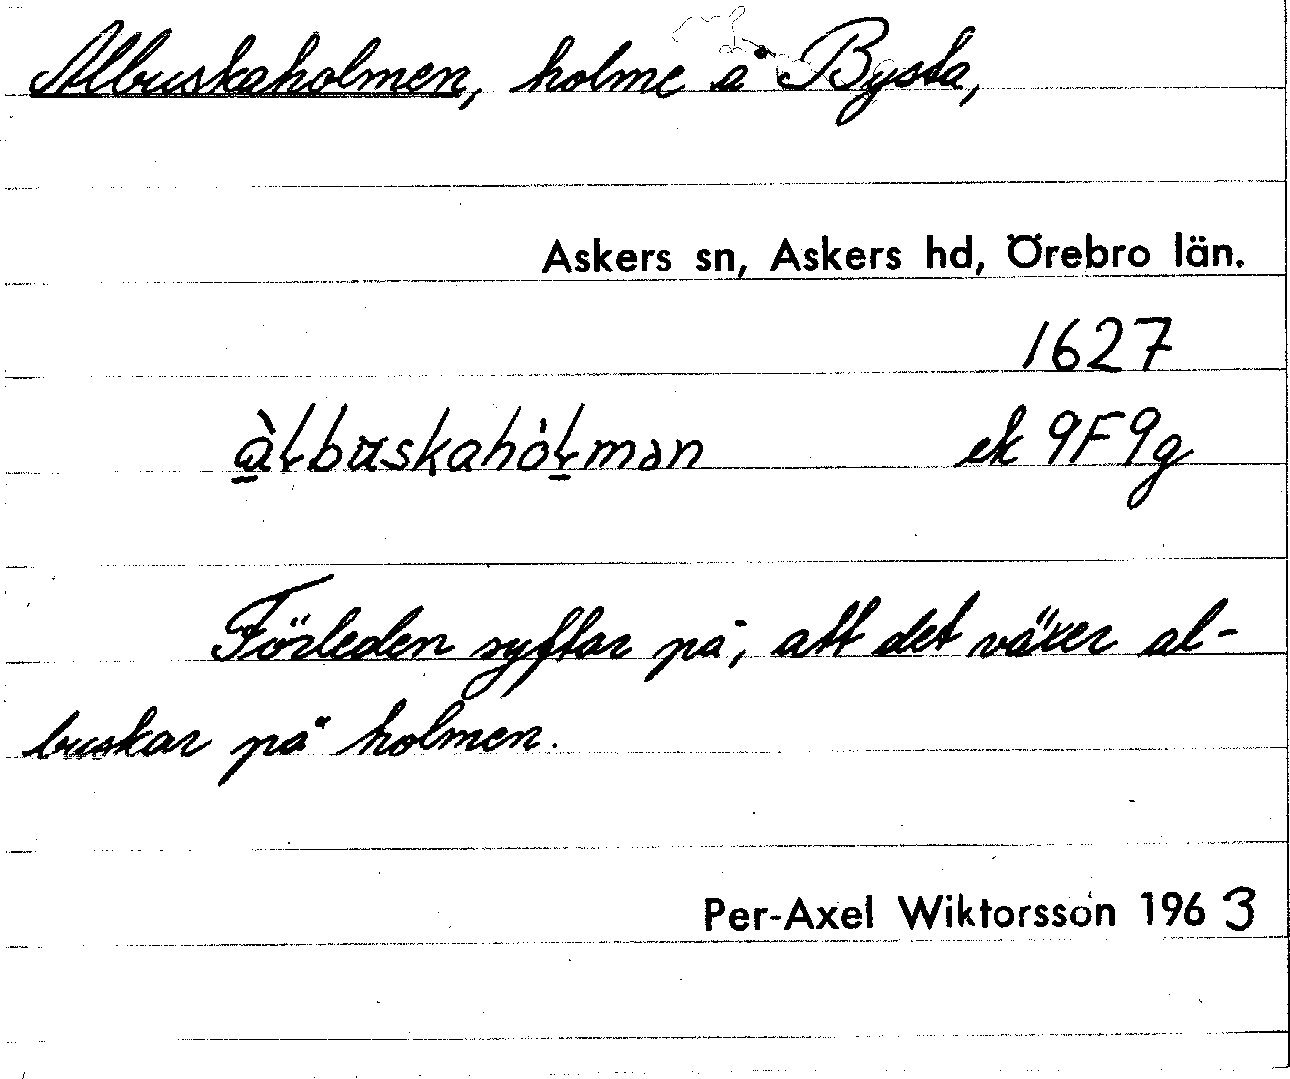 Albuskaholmen, holme å Bysta,
Askers sn, Askers hd, Örebro län.
1627
àɬbuskahòɬmən ek 9F9g
Förleden syftar på, att det växer al-
buskar på holmen.
Per-Axel Wiktorsson 1963